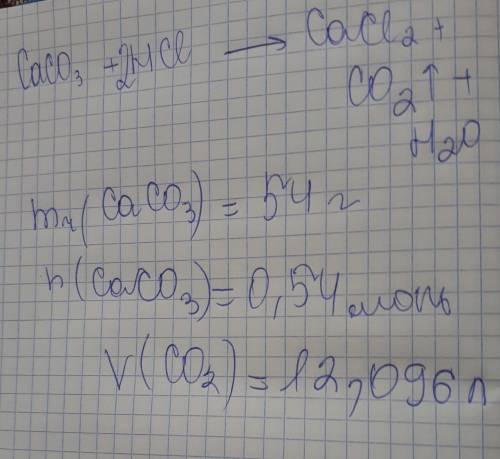 CaCO₃ + 2HCl ⟶ CaCl₂ +
CO₂↑ +
H₂O
mч(CaCO₃) = 54 г
n(CaCO₃) = 0,54 моль
V(CO₂) = 12,096 л